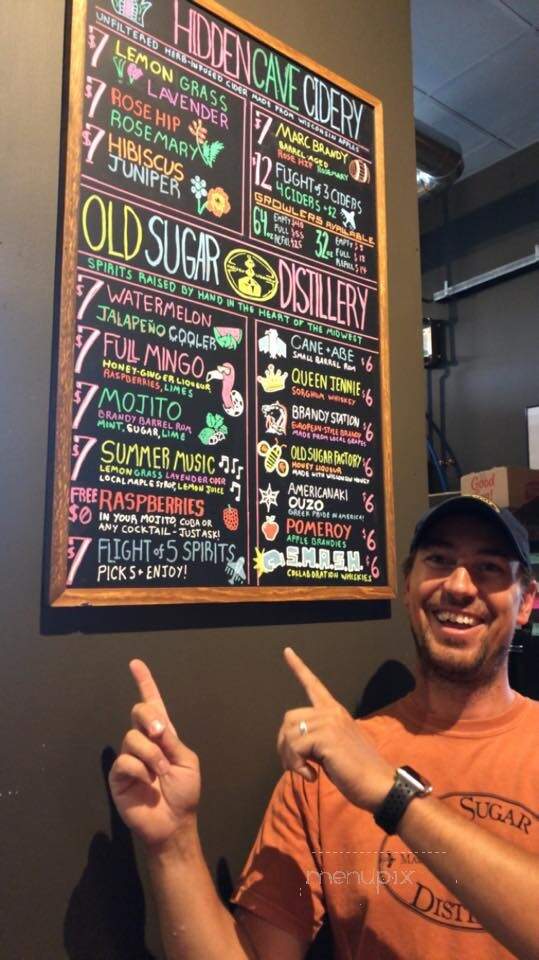 HIDDEN CAVE CIDERY
UNFILTERED HERB-INFUSED CIDER MADE FROM WISCONSIN APPLES
$7 LEMON GRASS
LAVENDER
$7 ROSE HIP
ROSEMARY
$7 HIBISCUS
JUNIPER
$7 MARC BRANDY
BARREL-AGED
ROSE HIP ROSEMARY
$12 FLIGHT of 3 CIDERS
4 CIDERS +$2
GROWLERS AVAILABLE
64 oz
EMPTY
FULL $55
REFILL
32 oz
EMPTY $5
FULL $18
REFILL $14
OLD SUGAR DISTILLERY
SPIRITS RAISED BY HAND IN THE HEART OF THE MIDWEST
$7 WATERMELON
JALAPEÑO COOLER
$7 FULL MINGO
HONEY-GINGER LIQUEUR
RASPBERRIES, LIMES
$7 MOJITO
BRANDY BARREL RUM
MINT, SUGAR, LIME
$7 SUMMER MUSIC
LEMON GRASS LAVENDER CIDER
LOCAL MAPLE SYRUP, LEMON JUICE
FREE $0 RASPBERRIES
IN YOUR MOJITO, CUBA OR
ANY COCKTAIL - JUST ASK!
$7 FLIGHT of 5 SPIRITS
PICK 5 + ENJOY!
CANE + ABE $6
SMALL BARREL RUM
QUEEN JENNIE $6
SORGHUM WHISKEY
BRANDY STATION $6
EUROPEAN-STYLE BRANDY
MADE FROM LOCAL GRAPES
OLD SUGAR FACTORY $6
HONEY LIQUEUR
MADE WITH WISCONSIN HONEY
AMERICANAKI
OUZO $6
GREEK PRIDE IN AMERICA!
POMEROY $6
APPLE BRANDIES
S.M.A.S.H. $6
COLLABORATION WHISKIES
Good
SUGAR
MA
DIST
menupix